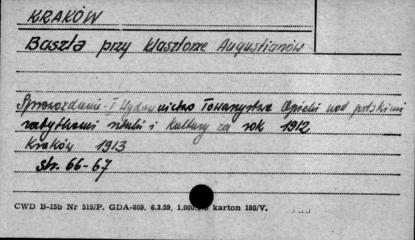 KRAKÓW
Baszta przy klasztorze Augustianów
Sprawozdanie i Wydawnictwo Towarzystwa Opieki nad polskimi
zabytkami sztuki i kultury za rok 1912
Kraków 1913
str. 66-67
CWD B-15b Nr 515/P. GDA-809. 6.3.59. 1.000. karton 180/V.